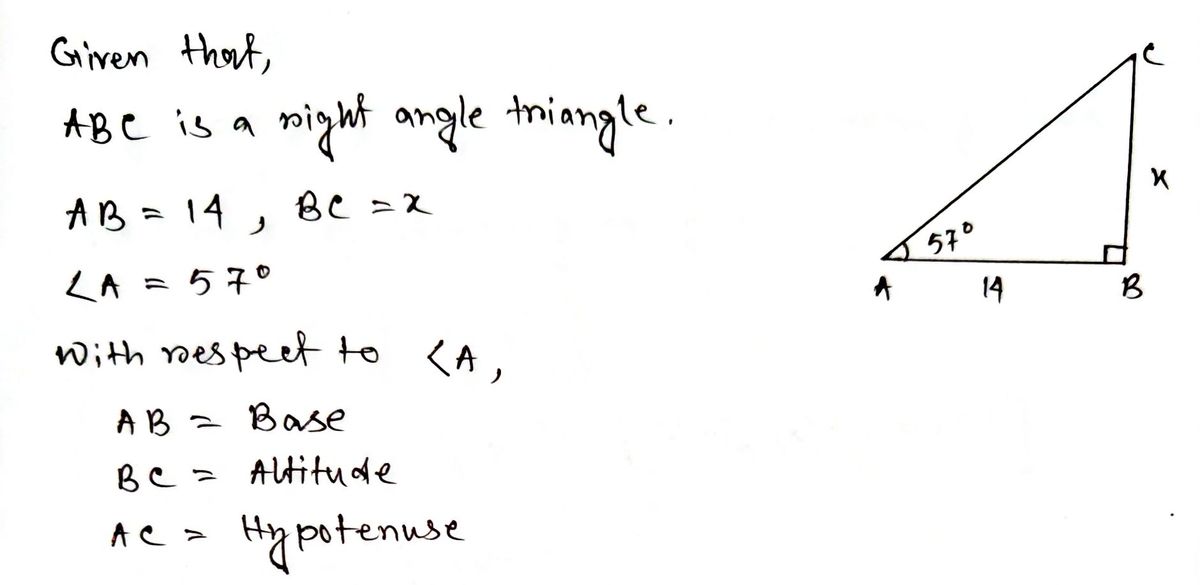 Given that,
ABC is a right angle triangle.
AB = 14 , BC = x
∠A = 57°
With respect to <A,
AB = Base
BC = Altitude
AC = Hypotenuse
C
x
57°
A 14 B